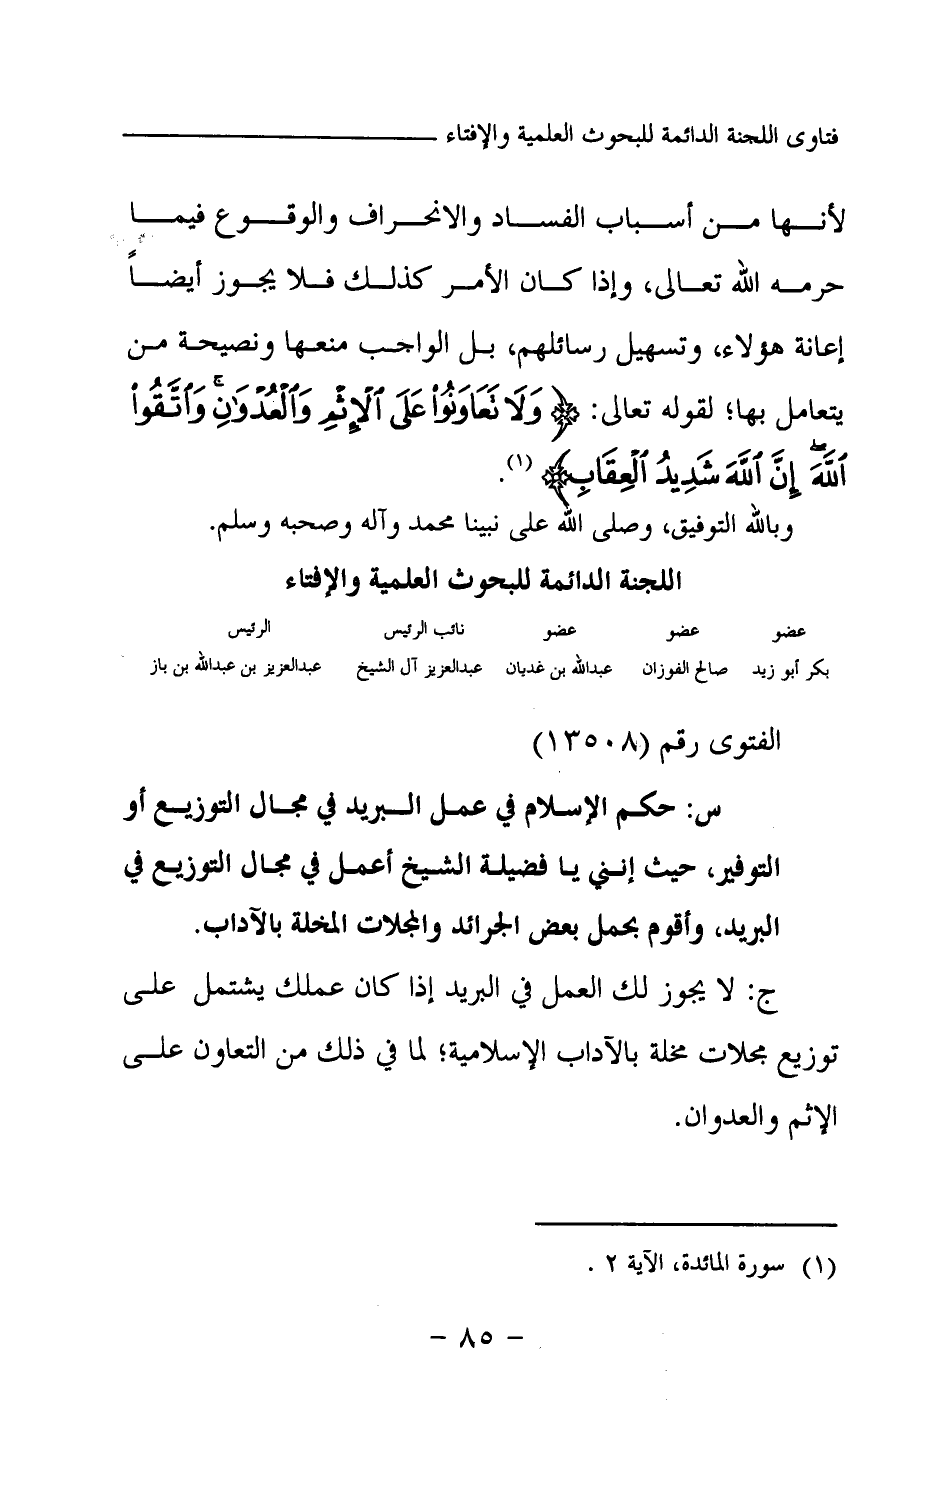 فتاوى اللجنة الدائمة للبحوث العلمية والإفتاء
لأنها من أسباب الفساد والانحراف والوقوع فيما
حرمه الله تعالى، وإذا كان الأمر كذلك فلا يجوز أيضاً
إعانة هؤلاء، وتسهيل رسائلهم، بل الواجب منعها ونصيحة من
يتعامل بها؛ لقوله تعالى: ﴿وَلَا تَعَاوَنُوا۟ عَلَى ٱلْإِثْمِ وَٱلْعُدْوَٰنِ ۚ وَٱتَّقُوا۟
ٱللَّهَ ۖ إِنَّ ٱللَّهَ شَدِيدُ ٱلْعِقَابِ﴾ (١).
وبالله التوفيق، وصلى الله على نبينا محمد وآله وصحبه وسلم.
اللجنة الدائمة للبحوث العلمية والإفتاء
عضو عضو عضو نائب الرئيس الرئيس
بكر أبو زيد صالح الفوزان عبدالله بن غديان عبدالعزيز آل الشيخ عبدالعزيز بن عبدالله بن باز
الفتوى رقم (١٣٥٠٨)
س: حكم الإسلام في عمل البريد في مجال التوزيع أو
التوفير، حيث إنني يا فضيلة الشيخ أعمل في مجال التوزيع في
البريد، وأقوم بحمل بعض الجرائد والمجلات المخلة بالآداب.
ج: لا يجوز لك العمل في البريد إذا كان عملك يشتمل على
توزيع مجلات مخلة بالآداب الإسلامية؛ لما في ذلك من التعاون على
الإثم والعدوان.
(١) سورة المائدة، الآية ٢ .
- ٨٥ -